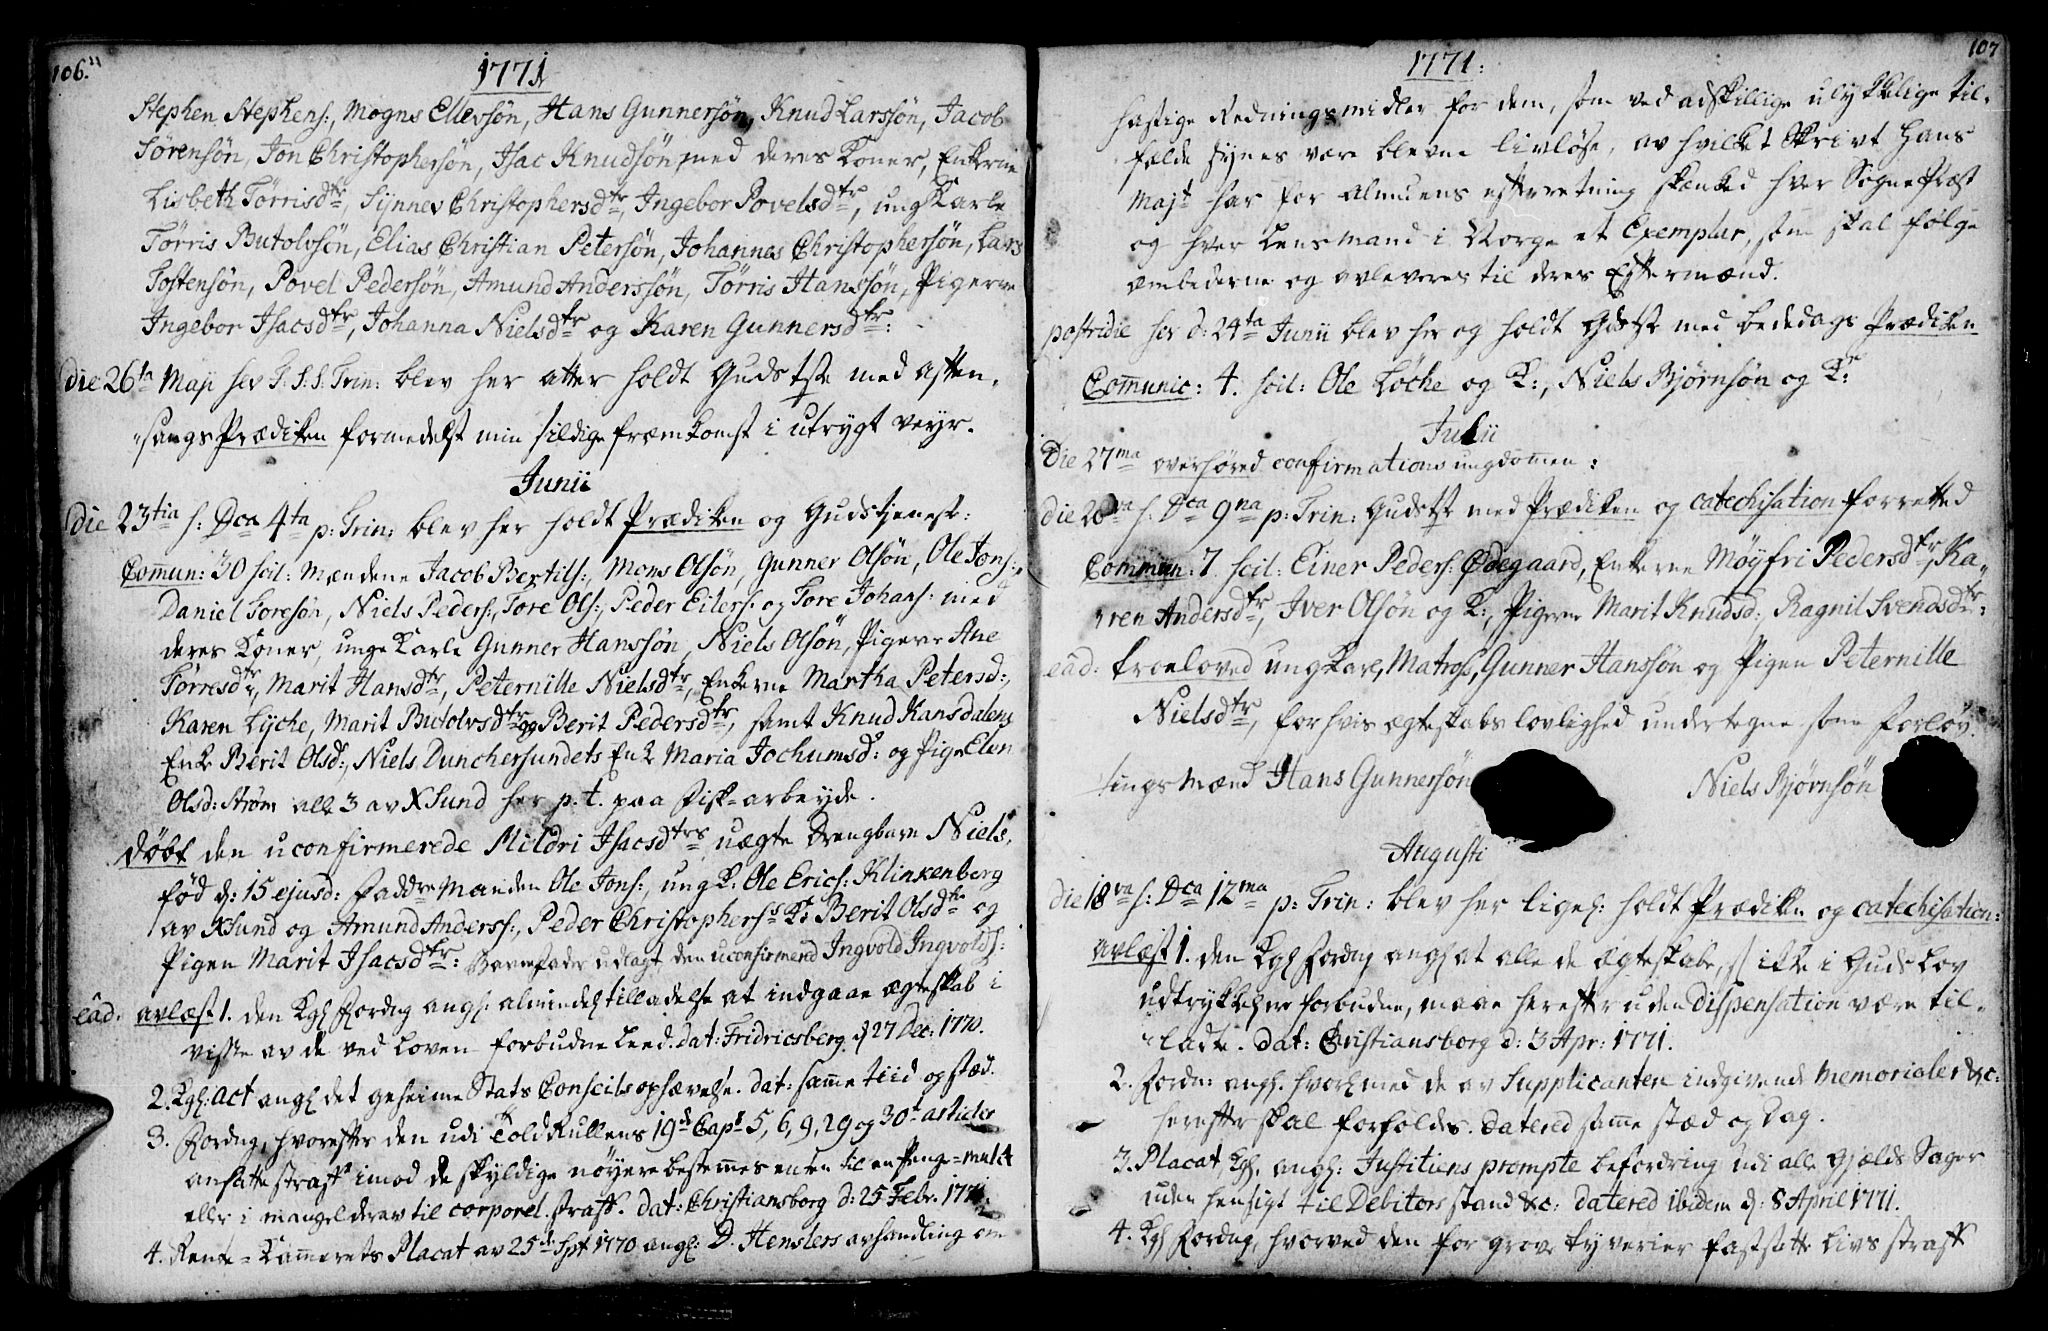 106.
1771
Stephen Stephens:, Mogns Ellevsøn, Hans Gunnersøn, Knud Larssøn, Jacob
Sørensøn, Jon Christophersøn, Isac Knudsøn, med deres Koner, Enkerne
Lisbeth Tørrisdtr, Synnev Christophersdtr, Ingebor Povelsdtr, ung Karle
Tørris Butolvsøn, Elias Christian Petersøn, Johannes Christophersøn, Lars
Tostensøn, Povel Pedersøn, Amund Anderssøn, Tørris Hanssøn, Pigerne
Ingebor Isacsdtr, Johanna Nielsdtr og Karen Gunnersdtr:
die 26ta Maji F. S. S. Trin: blev her atter holdt Guds tste med aften-
sangs Prædiken formedelst min sildige fræmkomst i utrygt veyr.
Junii
die 23tia h: Dca 4ta p: Trin: blev her holdt Prædiken og Gudstjenest:
Commun: 30 scil: Mændene Jacob Bertils:, Mons Olsøn, Gunner Olsøn, Ole Jons:,
Daniel Toresøn, Niels Peders:, Tore Ols:, Peder Eilers: og Tore Johans: med
deres Koner, unge Karle Gunner Hanssøn, Niels Olsøn, Pigerne Ane
Tørresdtr, Marit Hansdtr, Peternille Nielsdtr, Enkerne Martha Petersd:,
Karen Lyche, Marit Butolvsdtr og Berit Pedersdtr, samt Knud Kansdalens
Enke Berit Olsd:, Niels Dunchersundets Enk Maria Jochumsd: og Pige Elen
Olsd: Strøm alle 3 av XSund her p. t. paa fisk-arbeyde.
Døbt den uconfirmerede Mildri Isacsdtrs uægte Drengbarn Niels,
fød d: 15 ejusd: Faddre Manden Ole Jons:, ungK. Ole Erics: Klinkenberg
av XSund og Amund Anders:, Peder Christophers: K: Berit Olsdtr og
Pigen Marit Isacsdtr: Barnefader udlagt den uconfirmered Ingvold Ingvolds:
eâd: avlæst 1. den Kgl Fordng angl. almindel tilladelse at indgaae ægteskab i
visse av de ved loven forbudne Leed. dat: Fridricsberg d 27 Dec: 1770.
2. Kgl: Act angl det geheime Stats Conseils ophævelse. dat: samme tiid og stæd.
3. Fordng, hvorefter den udi Told Rullens 19de Capt 5, 6, 9, 29 og 30t articler
ansatte straff imod de skyldige nøyere bestemmes enten til en Penge-mulct
eller i mangel derav til corporel straff. dat: Christiansborg d: 25 Febr. 1771.
4. Rente-Kammerets Placat av 25de Spt 1770 angl: D. Henslers avhandling om
107
1771:
hastige Rednings midler for dem, som ved adskillige ulykkelige til-
fælde synes være blevne livløse, av hvilket Skrivt Hans
Majt har for almuens efterretning skænked hver Sogne Præst
og hver Lensmand i Norge et Exemplar, som skal følge
embederne og avleveres til deres Eftermænd.
postridie d: 24ta Junii blev her og holdt Gudstst med bededags Prædiken
Communic: 4. scil: Ole Løche og K:, Niels Bjørnsøn og K:
Julii
Die 27ma overhøred confirmations ungdommen:
die 28va h: Dca 9na p: Trin: Gudstst med Prædiken og catechisation forretted
Commun: 7. scil: Einer Peders: Ødegaard, Enkerne Møyfri Pedersdtr, Ka-
ren Andersdtr, Iver Olsøn og K:, Pigerne Marit Knudsd: Ragnil Svendsdtr:
eâd: troeloved ung Kare, Matros, Gunner Hanssøn og Pigen Peternille
Nielsdtr, for hvis ægteskabs lovlighed undertegne som forlov-
ningsmænd Hans Gunnersøn Niels Bjørnsøn
Augusti
die 18va h: Dca 12ma p: Trin: blev her ligel: holdt Prædiken og catechisation:
avlæst 1. den Kgl Fordng angl at alle de ægteskabe, ikke i Guds Lov
udtrykkel: forbudne, maae herefter uden dispensation være til-
ladte. dat: Christiansborg d: 3 Apr: 1771.
2. Fordn: angl. hvorl med de av Supplicanten indgivende Memorialer &c:
herefter skal forholdes. datered samme stæd og Dag.
3. Placat Kgl. angl: Justitiens prompte befordring udi alle Gjælds Sager
uden hensigt til Debitors stand &c: datered ibidem d: 8 April 1771.
4. Kgl Fordng, hvorved den for grove tyverier fastsatte livs straff